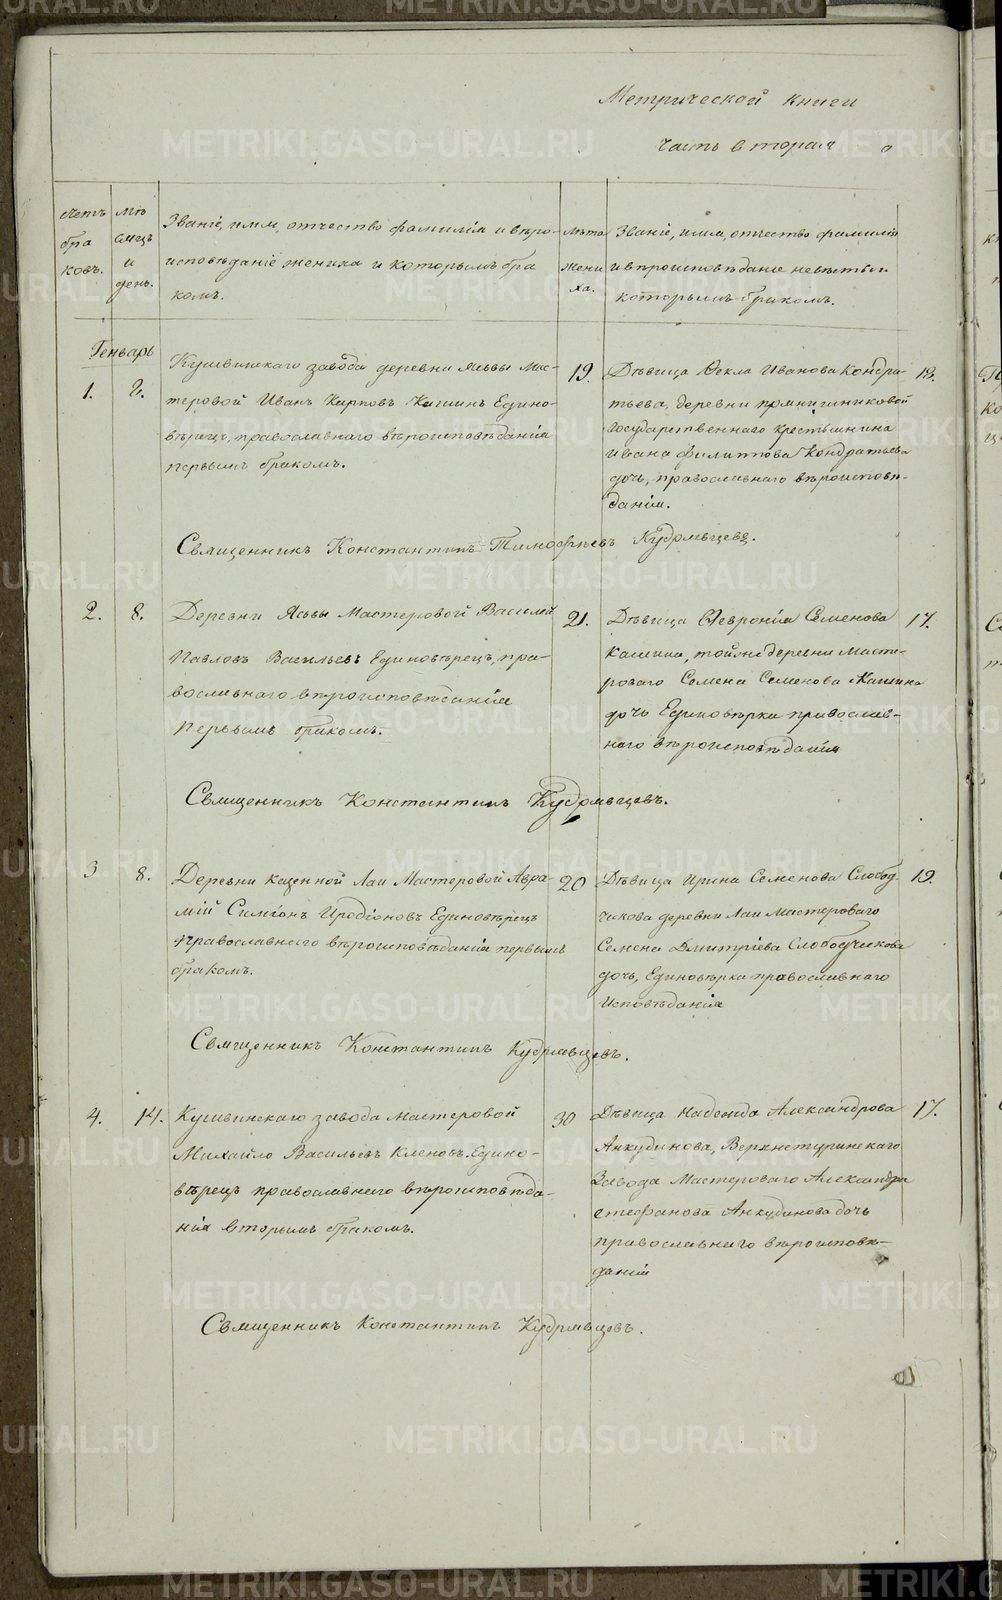 Метрической книги
часть вторая о
Счетъ бра ковъ.
Мѣ сяцъ и день.
Званіе, имя, отчество фамилія и вѣро-
исповѣданіе жениха и которымъ бра
комъ.
Лѣта жени ха.
Званіе, имя, отчество фамилія
и вѣроисповѣданіе невѣсты и
которымъ бракомъ.
Генварь
1. 8.
Кушвинскаго завода деревни Ясьвы Мас-
теровой Иванъ Карповъ Кашинъ Едино-
вѣрецъ, православнаго вѣроисповѣданія
первымъ бракомъ.
19.
Дѣвица Фекла Иванова Кондра-
тьева, деревни
государственнаго крестьянина
Ивана Филиппова Кондратьева
дочь, православнаго вѣроисповѣ-
данія.
18.
Священникъ Константинъ Тимофѣевъ Кудрявцевъ.
2. 8.
Деревни Ясьвы Мастеровой Василей
Павловъ Васильевъ Единовѣрецъ, пра-
вославнаго вѣроисповѣданія
первымъ бракомъ.
21.
Дѣвица Февронія Семенова
Кашина, той же деревни Масте-
роваго Семена Семенова Кашина
дочь Единовѣрка православ-
наго вѣроисповѣданія
17.
Священникъ Константинъ Кудрявцевъ.
3 8.
Деревни казенной Лаи Мастеровой Авра-
мій Симіонъ Иродіоновъ Единовѣрецъ
православнаго вѣроисповѣданія первымъ
бракомъ.
20
Дѣвица Ирина Семенова Слобод-
чикова деревни Лаи мастероваго
Семена Дмитріева Слободчикова
дочь, Единовѣрка православнаго
исповѣданія
19.
Священникъ Константинъ Кудрявцевъ.
4. 14.
Кушвинскаго завода мастеровой
Михайло Васильевъ Кленовъ. Едино-
вѣрецъ православнаго вѣроисповѣда-
нія вторымъ бракомъ.
30
Дѣвица Надежда Александрова
Анкудинова, Верхнетуринскаго
Завода Мастероваго Александра
Стефанова Анкудинова дочь
православнаго вѣроисповѣ-
данія
17.
Священникъ Константинъ Кудрявцевъ.
METRIKI.GASO-URAL.RU